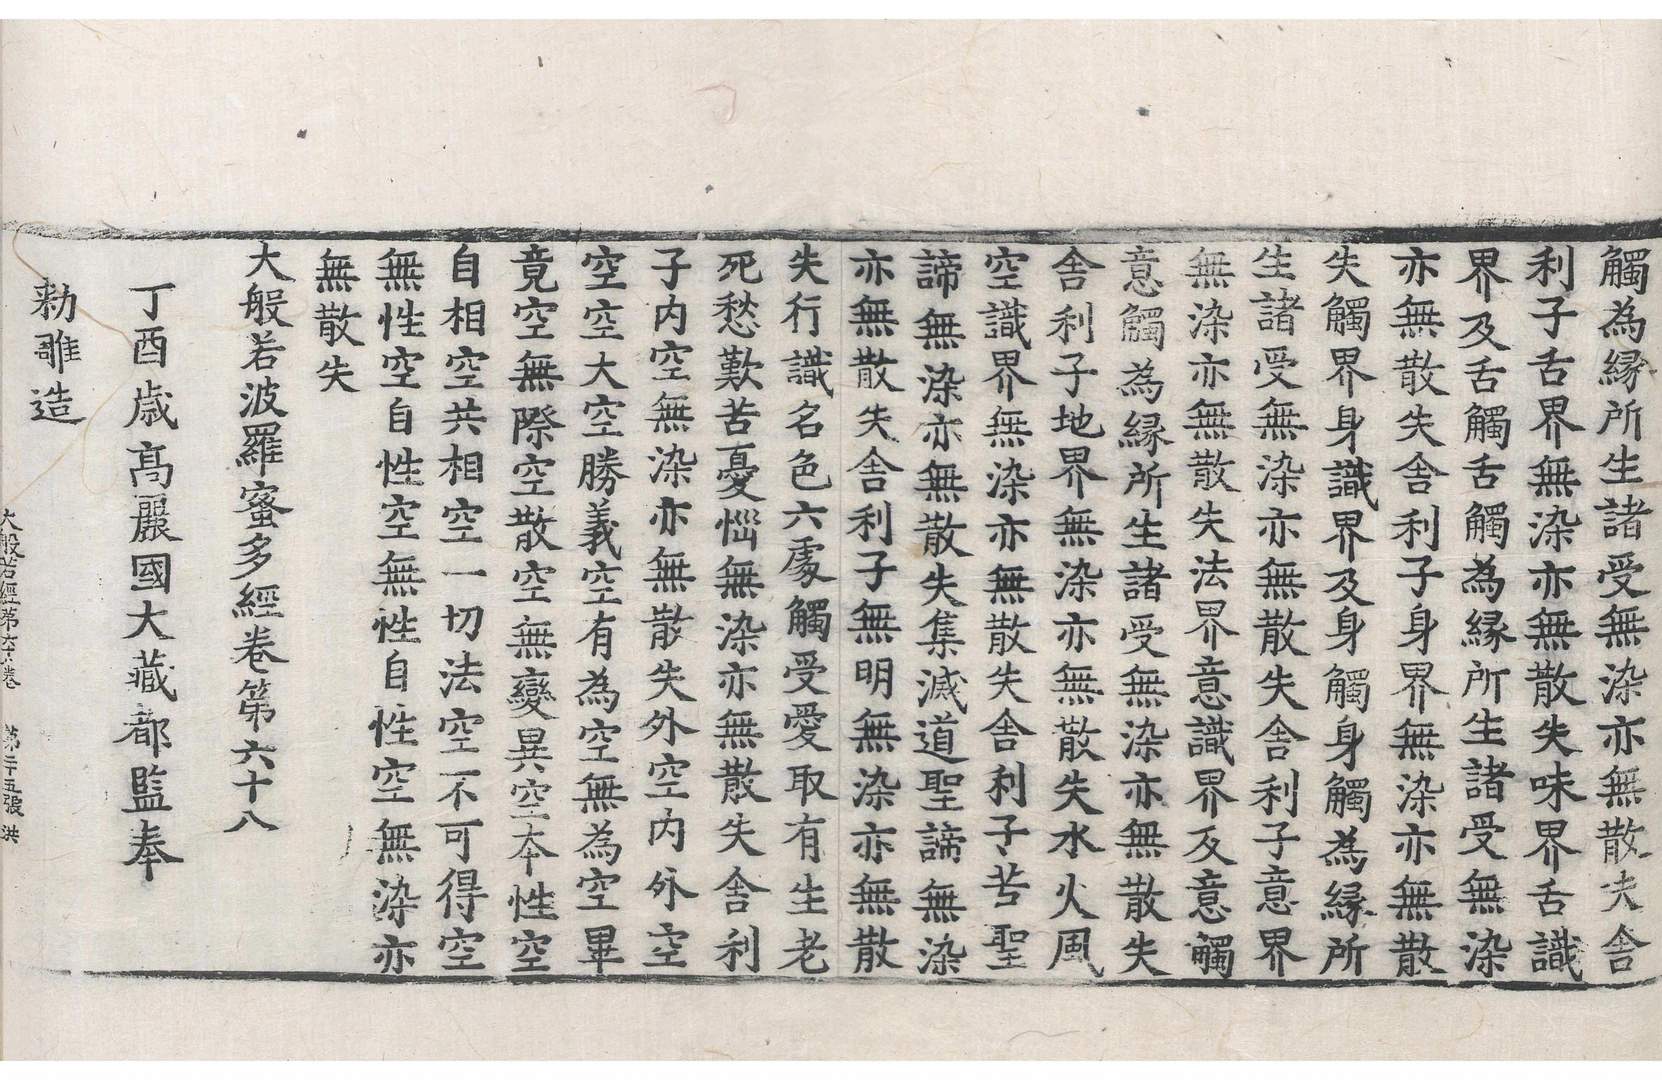 觸為緣所生諸受無染亦無散失舍
利子舌界無染亦無散失味界舌識
界及舌觸舌觸為緣所生諸受無染
亦無散失舍利子身界無染亦無散
失觸界身識界及身觸身觸為緣所
生諸受無染亦無散失舍利子意界
無染亦無散失法界意識界及意觸
意觸為緣所生諸受無染亦無散失
舍利子地界無染亦無散失水火風
空識界無染亦無散失舍利子苦聖
諦無染亦無散失集滅道聖諦無染
亦無散失舍利子無明無染亦無散
失行識名色六處觸受愛取有生老
死愁歎苦憂惱無染亦無散失舍利
子內空無染亦無散失外空內外空
空空大空勝義空有為空無為空畢
竟空無際空散空無變異空本性空
自相空共相空一切法空不可得空
無性空自性空無性自性空無染亦
無散失
大般若波羅蜜多經卷第六十八
丁酉歲高麗國大藏都監奉
勅雕造
大般若經第六十八卷 第二十五張 洪